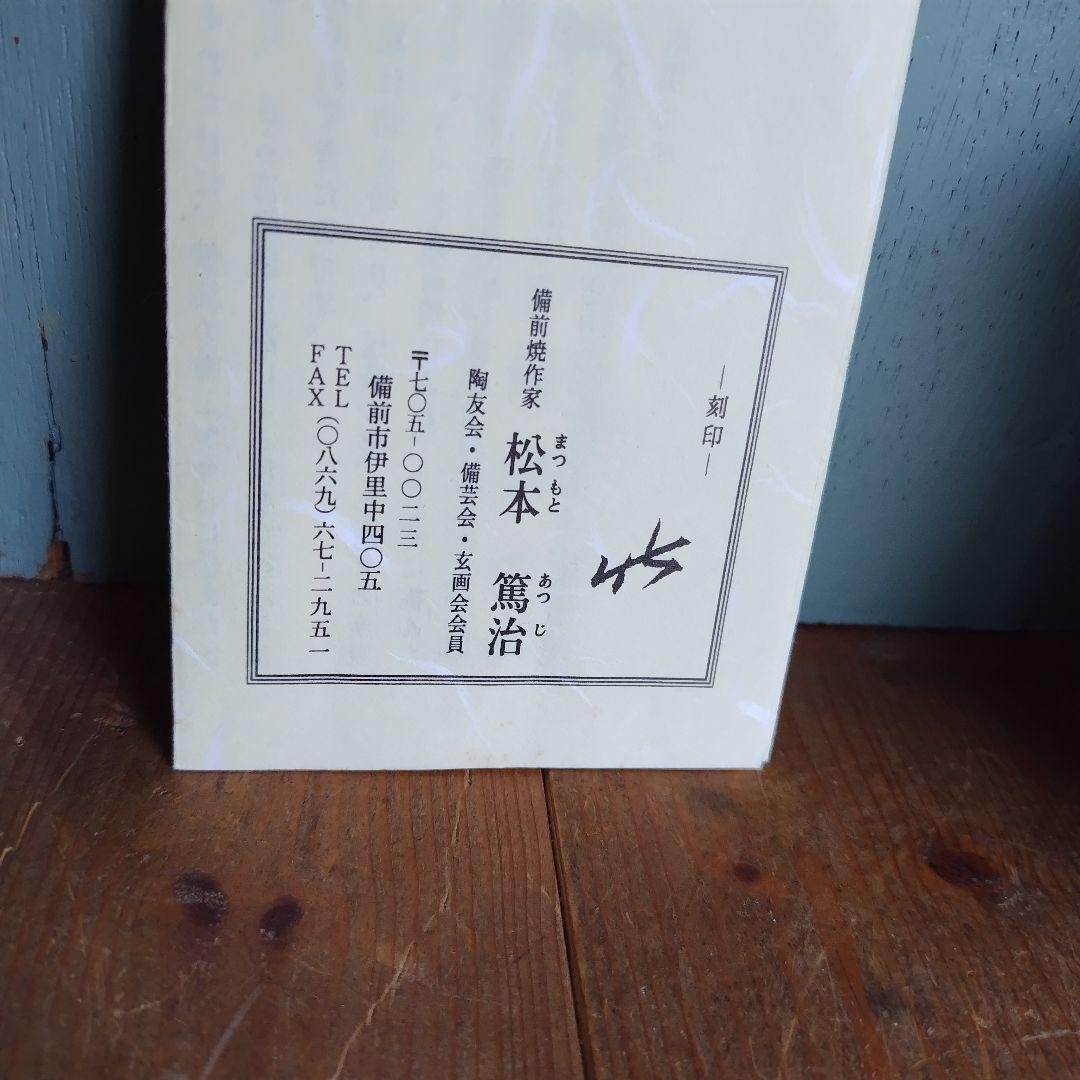 ―刻印―
備前焼作家 松本 篤治
まつ もと あつ じ
陶友会・備芸会・玄画会会員
〒七〇五-〇〇二三
備前市伊里中四〇五
TEL
FAX (〇八六九)六七-二九五一